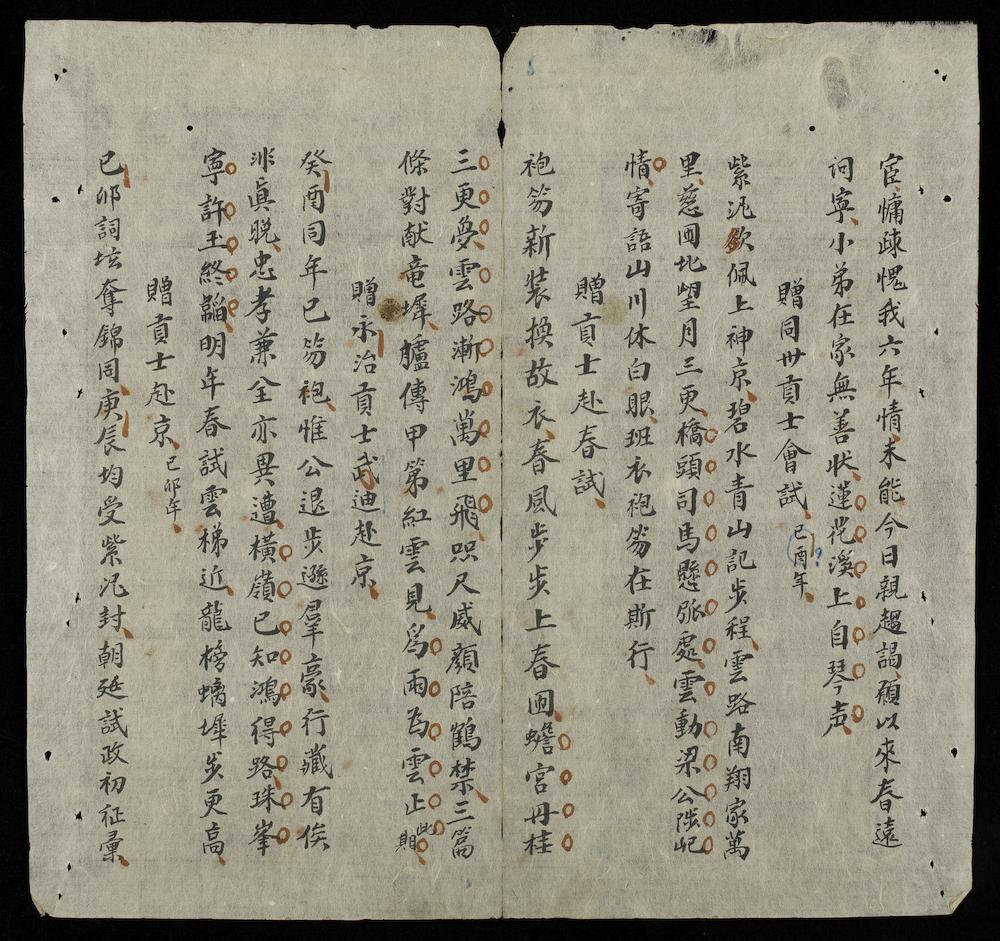 宦慵疎愧我六年情未能今日親趨謁願以來春遠
詞寧小弟在家無善狀蓮花溪上自琴声
贈同丗貢士會試 己酉年 ?
紫泥欲佩上神京碧水青山記步程雲路南翔家萬
里慈闱北望月三更橋頭司馬懸弧處雲動梁公陟屺
情寄語山川休白眼班衣袍笏在斯行
贈貢士赴春試
袍笏新裝換故衣春風步步上春囲蟾宮丹桂
三更夢雲路漸鴻萬里飛咫尺威顏陪鶴禁三篇
條對献竜墀臚傳甲第紅雲見為雨為雲止此期
贈永治貢士武迪赴京
癸酉同年已笏袍惟公退步遜羣豪行藏有俟
非真晚忠孝兼全亦異遭橫嶺已知鴻得路珠峯
寧許玉終韜明年春試雲梯近龍榜螭墀步更高
贈貢士赴京 己卯年
己卯詞坛奪錦同庚辰均受紫泥封朝廷試政初征彙